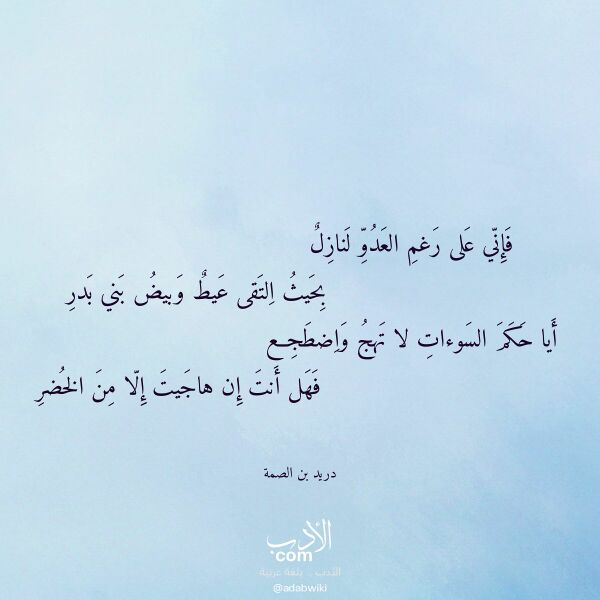 فَإِنّي عَلى رَغمِ العَدُوِّ لَنازِلٌ
بِحَيثُ اِلتَقى عَيطٌ وَبيضُ بَني بَدرِ
أَيا حَكَمَ السَوءاتِ لا تَهجُ وَاِضطَجِع
فَهَل أَنتَ إِن هاجَيتَ إِلّا مِنَ الخُضرِ
دريد بن الصمة
الأدب
com
الأدب .. بلغة عربية
@adabwiki